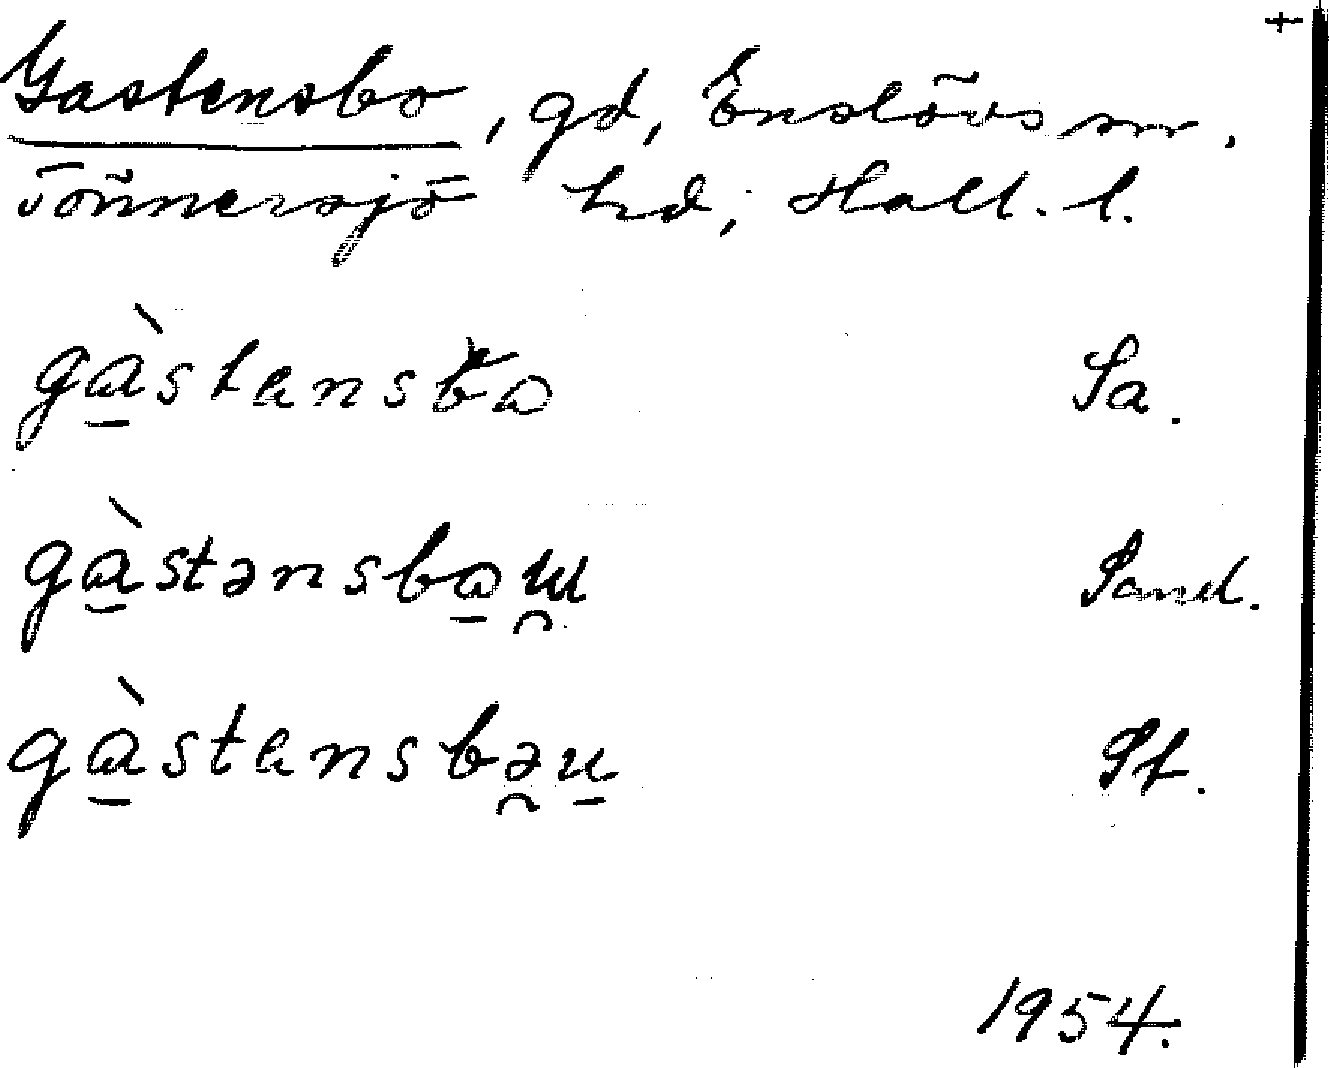 Gastensbo, gd, Enslövs sn.
Tönnersjö hd, Hall. l.
gàstensbo Sa.
gàstənsbow Sand.
gàstensbəu St.
1954.